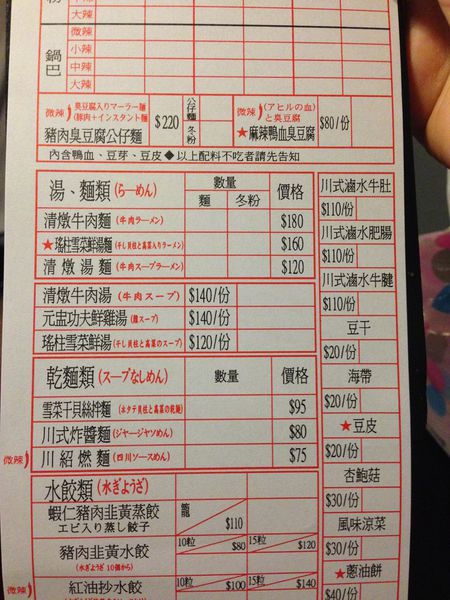 大辣
鍋巴
微辣
小辣
中辣
大辣
微辣
臭豆腐入りマーラー麺
(豚肉+インスタント麺)
豬肉臭豆腐公仔麵
$220
公仔麵
冬粉
微辣
(アヒルの血)
と臭豆腐
★麻辣鴨血臭豆腐
$80/份
內含鴨血、豆芽、豆皮◆以上配料不吃者請先告知
湯、麵類(らーめん)
數量
麵
冬粉
價格
清燉牛肉麵(牛肉ラーメン)
$180
★瑤柱雪菜鮮湯麵(干し貝柱と高菜入りラーメン)
$160
清燉湯麵(牛肉スープラーメン)
$120
清燉牛肉湯(牛肉スープ)
$140/份
元盅功夫鮮雞湯(鶏スープ)
$140/份
瑤柱雪菜鮮湯(干し貝柱と高菜のスープ)
$120/份
乾麵類(スープなしめん)
數量
價格
雪菜干貝絲拌麵(ホタテ貝柱と高菜の乾麺)
$95
川式炸醬麵(ジャージャソめん)
$80
微辣
川紹燃麵(四川ソースめん)
$75
水餃類(水ぎょうざ)
蝦仁豬肉韭黃蒸餃
エビ入り蒸し餃子
籠
$110
豬肉韭黃水餃
(水ぎょうざ 10個から)
10粒
$80
15粒
$120
微辣
紅油抄水餃
10粒
$100
15粒
$140
川式滷水牛肚
$110/份
川式滷水肥腸
$110/份
川式滷水牛腱
$110/份
豆干
$20/份
海帶
$20/份
★豆皮
$20/份
杏鮑菇
$30/份
風味涼菜
$30/份
★蔥油餅
$40/份